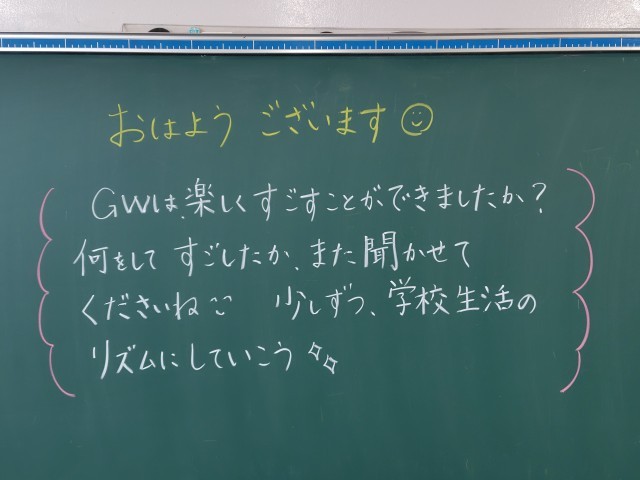 おはよう ございます
GWは、楽しくすごすことができましたか？
何をして すごしたか、また聞かせて
くださいね 少しずつ、学校生活の
リズムにしていこう